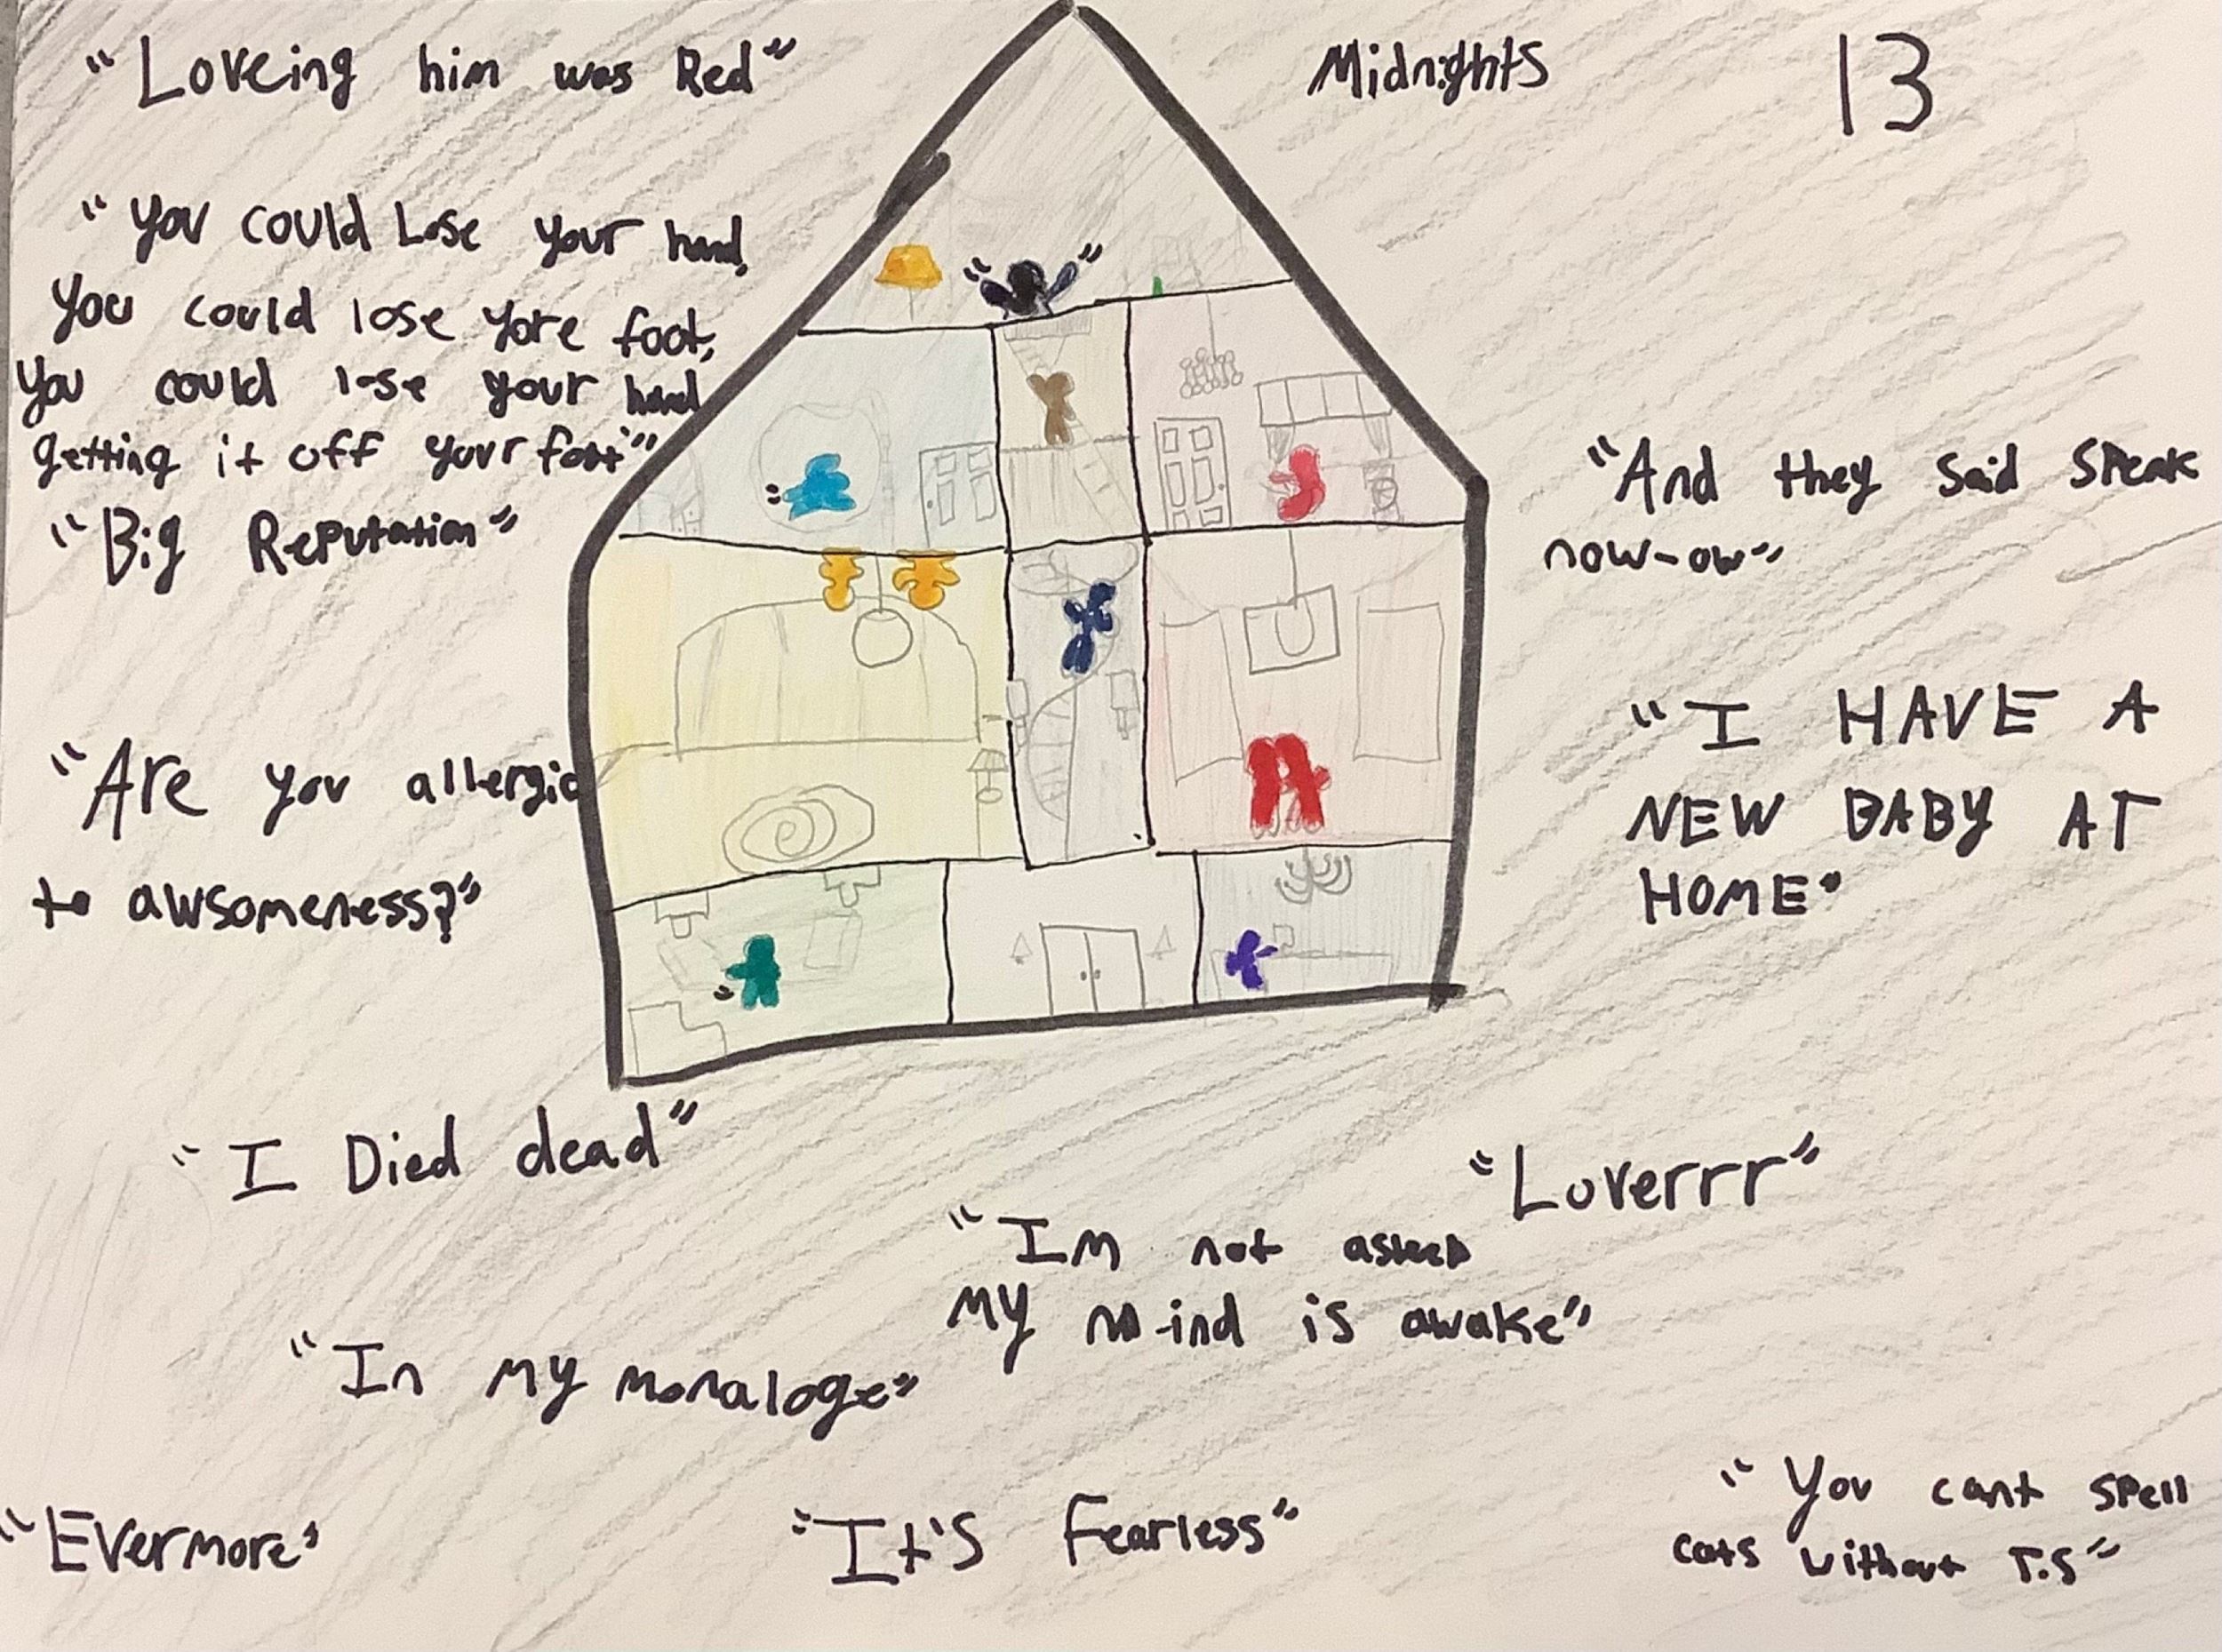 "Loveing him was Red"
Midnights
13
"You could Lose your hand,
You could lose yore foot,
You could lose your hand
getting it off your foot"
"Big Reputation"
"And they said speak
now-ow"
"I HAVE A
NEW BABY AT
HOME"
"Are you allergic
to awsomeness?"
"I Died dead"
"Loverrr"
"Im not asleep
MY Mind is awake"
"In my monaloge"
"Evermore"
"It's Fearless"
"You cant spell
cats without T.S"